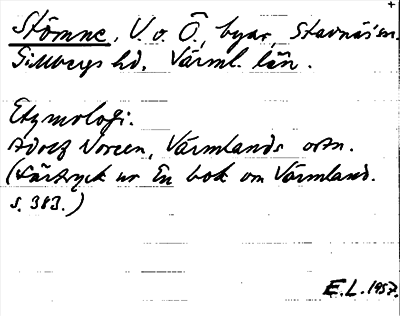 Stömne, V. o. Ö, byar, Stavnäs sn.
Gillbergs hd. Värml. län.
Etymologi.
Adolf Noreen, Värmlands ortn.
(Särtryck ur En bok om Värmland.
s. 383.)
E.L. 1957.